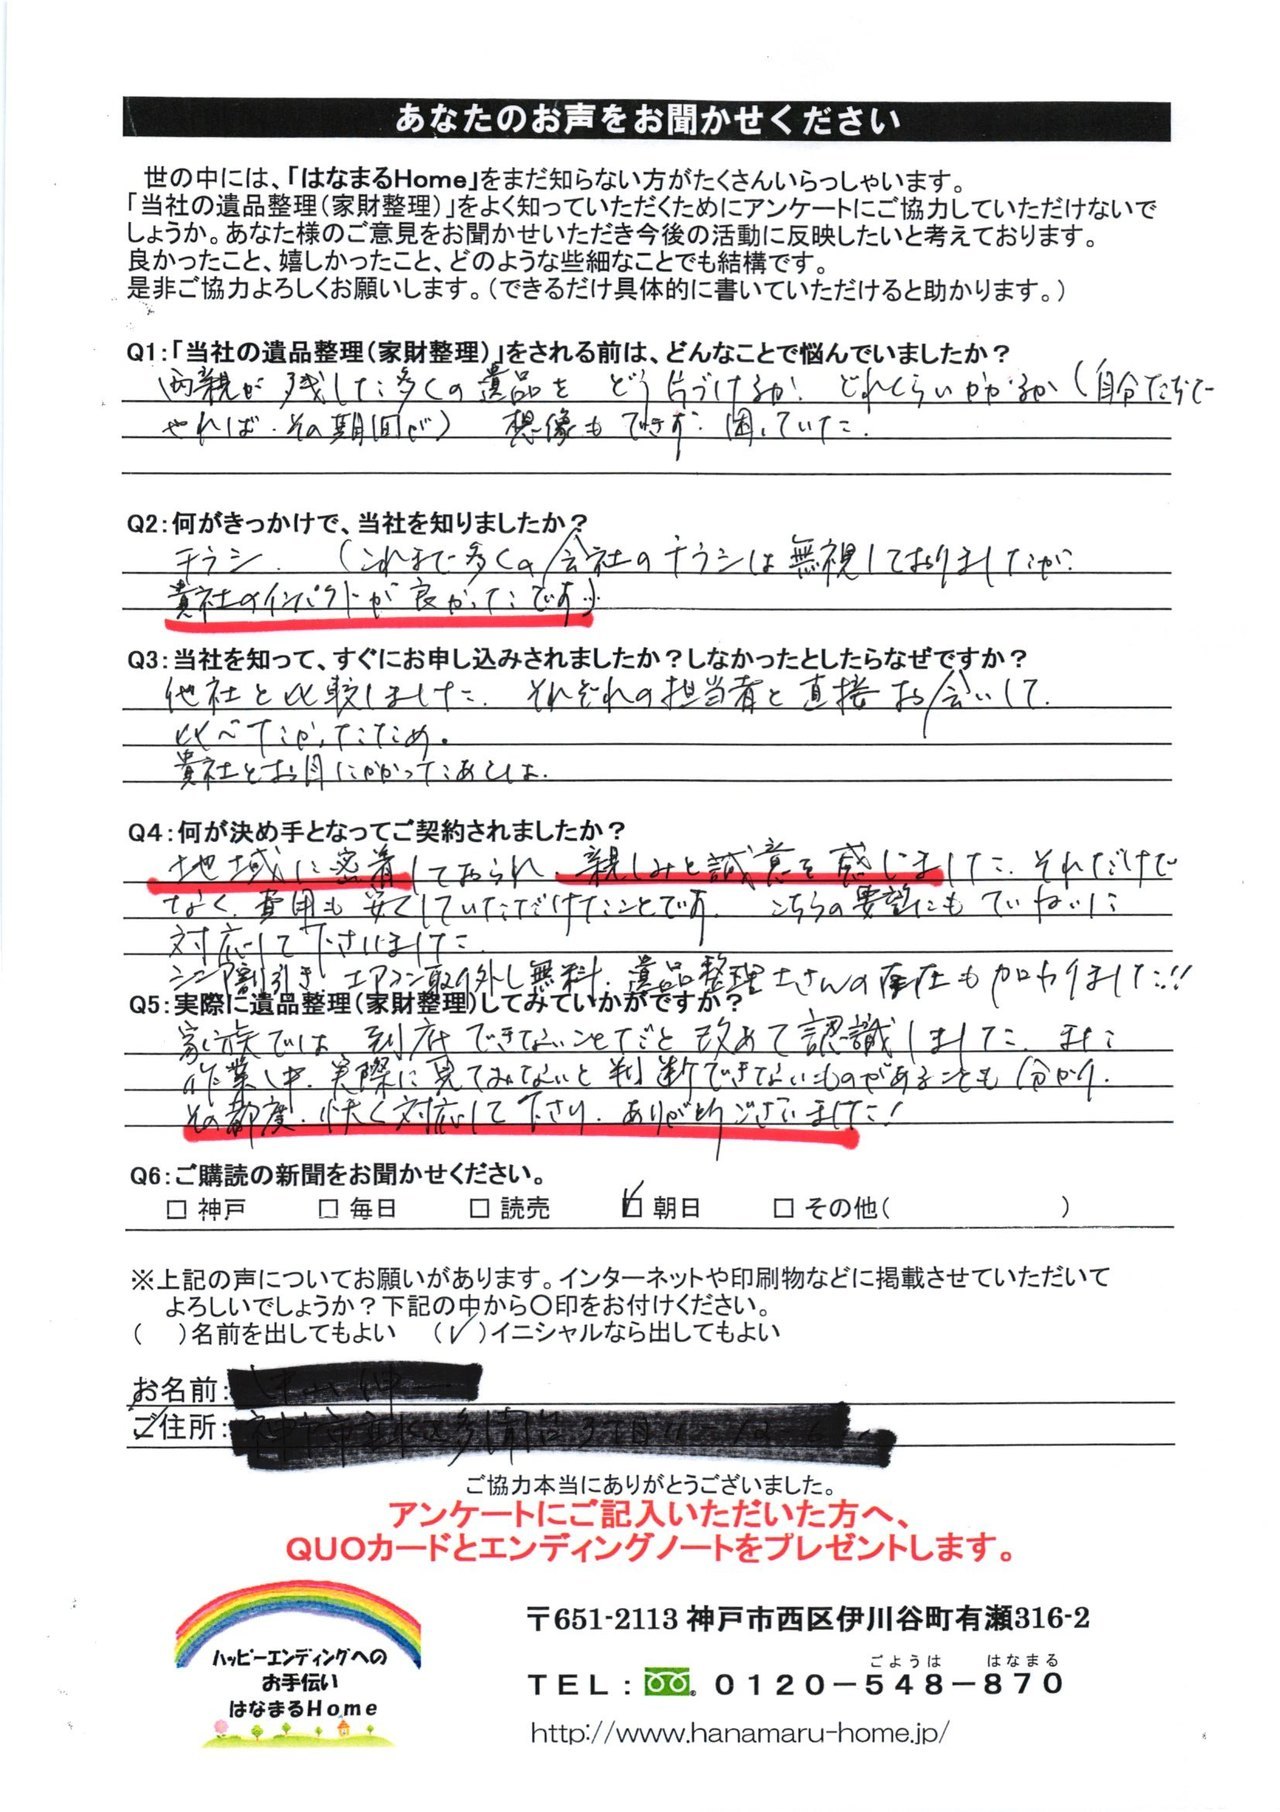 あなたのお声をお聞かせください
世の中には、「はなまるHome」をまだ知らない方がたくさんいらっしゃいます。
「当社の遺品整理(家財整理)」をよく知っていただくためにアンケートにご協力していただけないで
しょうか。あなた様のご意見をお聞かせいただき今後の活動に反映したいと考えております。
良かったこと、嬉しかったこと、どのような些細なことでも結構です。
是非ご協力よろしくお願いします。(できるだけ具体的に書いていただけると助かります。)
Q1:「当社の遺品整理(家財整理)」をされる前は、どんなことで悩んでいましたか?
両親が残した多くの遺品を どう片づけるか. どれくらいかかるか(自分たちで
やれば.その期間が) 想像もできず.困っていた.
Q2:何がきっかけで、当社を知りましたか?
チラシ. (これまで多くの会社のチラシは無視しておりましたが.
貴社のインパクトが良かったです)
Q3:当社を知って、すぐにお申し込みされましたか?しなかったとしたらなぜですか?
他社と比較しました. それぞれの担当者と直接お会いして.
比べたかったため.
貴社とお目にかかったあとは.
Q4:何が決め手となってご契約されましたか?
地域に密着しておられ.親しみと誠意を感じました.それだけで
なく.費用も安くしていただけたことです. こちらの要望にもていねいに
対応して下さいました.
シニア割引き.エアコン取り外し無料.遺品整理士さんの存在も加わりました!!
Q5:実際に遺品整理(家財整理)してみていかがですか?
家族では到底できないことだと改めて認識しました.また
作業中.実際に見てみないと判断できないものがあることも分かり.
その都度.快く対応して下さり.ありがとうございました!
Q6:ご購読の新聞をお聞かせください。
□ 神戸 □ 毎日 □ 読売 ☑ 朝日 □ その他( )
※上記の声についてお願いがあります。インターネットや印刷物などに掲載させていただいて
よろしいでしょうか?下記の中から○印をお付けください。
( )名前を出してもよい (✓)イニシャルなら出してもよい
お名前:
ご住所:
ご協力本当にありがとうございました。
アンケートにご記入いただいた方へ、
QUOカードとエンディングノートをプレゼントします。
ハッピーエンディングへの
お手伝い
はなまるHome
〒651-2113 神戸市西区伊川谷町有瀬316-2
ごようは はなまる
TEL: 0120-548-870
http://www.hanamaru-home.jp/